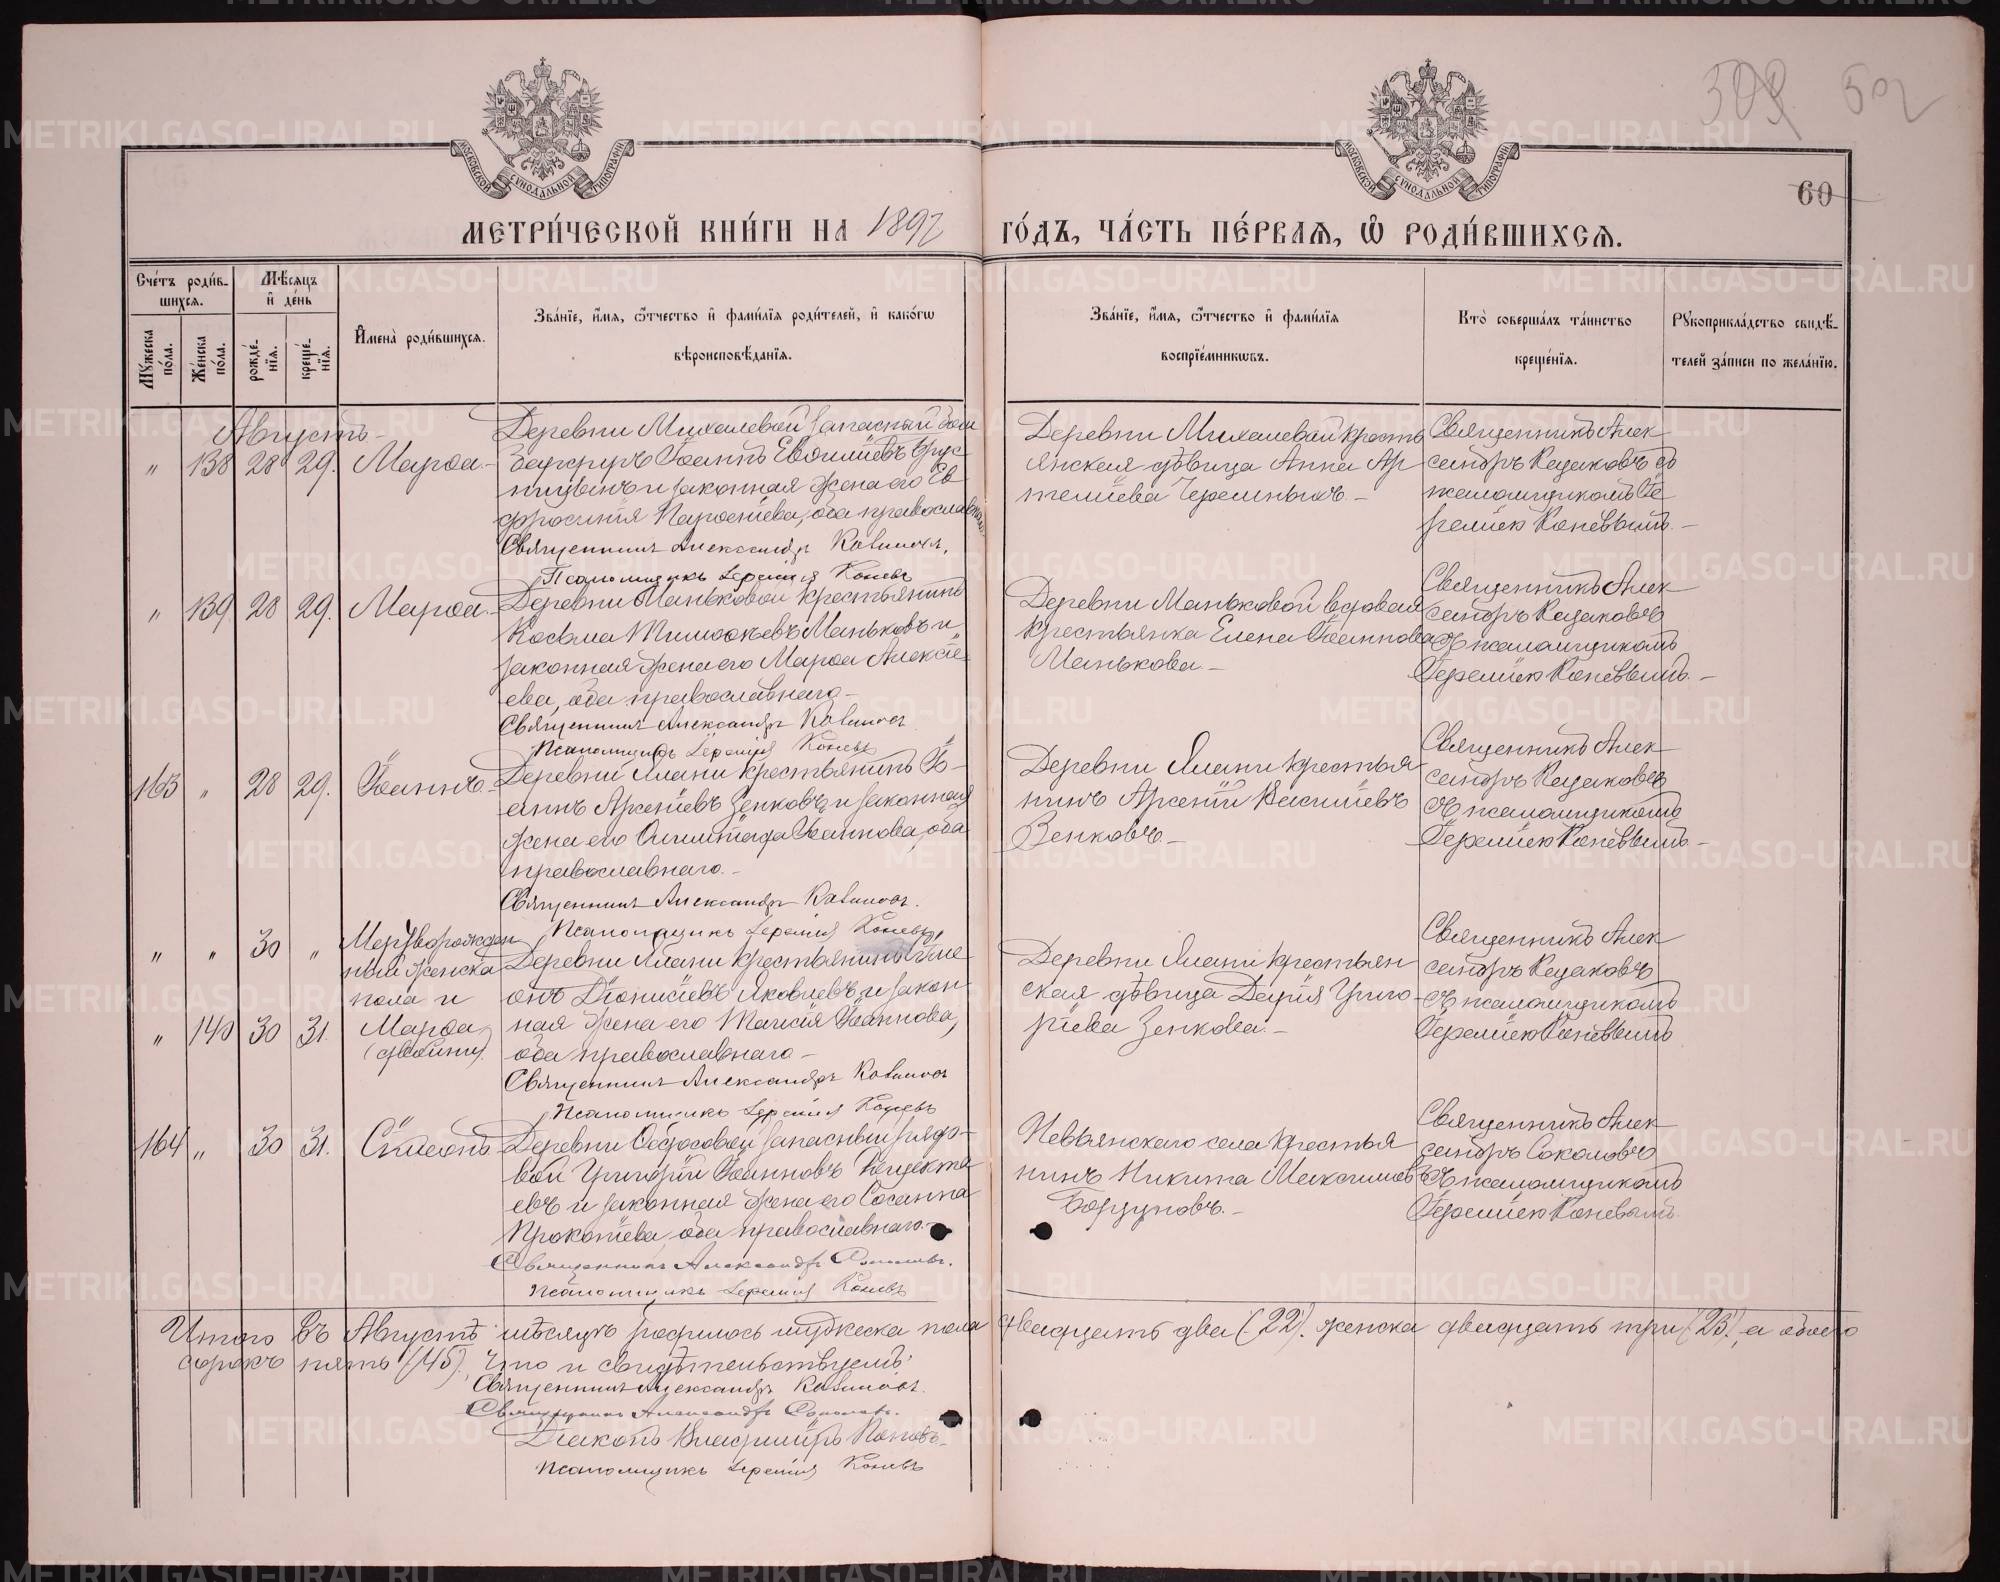 МОСКОВСКОЙ СУНОДАЛЬНОЙ ТИПОГРАФІИ
МОСКОВСКОЙ СУНОДАЛЬНОЙ ТИПОГРАФІИ
502
60
МЕТРИ́ЧЕСКОЙ КНИ́ГИ НА 1897 ГО́ДЪ, ЧА́СТЬ ПЕ́РВАѦ, Ѡ РОДИ́ВШИХСѦ.
Сче́тъ роди́в-
шихсѧ.
Мѣсѧцъ
и де́нь
Мꙋжеска по́ла.
Же́нска по́ла.
рожде́-нїѧ.
креще́-нїѧ.
Имена̀ роди́вшихсѧ.
Зва́нїе, и́мѧ, ѻ́тчество и фами́лїѧ роди́телей, и како́гѡ
вѣроисповѣ́данїѧ.
Зва́нїе, и́мѧ, ѻ́тчество и фами́лїѧ
воспрїе́мникѡвъ.
Кто̀ соверша́лъ та́инство
креще́нїѧ.
Рꙋкоприкла́дство свидѣ́-
телей за́писи по жела́нїю.
Августъ
„ 138 28 29. Марѳа
Деревни Михалевой запасный бом
бардиръ Іоаннъ
и законная жена его Ев
фросинія Парѳеніева, оба православнаго
Священникъ Александръ Казаковъ.
Псаломщикъ Іеремія Коневъ
Деревни Михалевой кресть
янская дѣвица Анна Ар
теміева Черемныхъ
Священникъ Алек
сандръ Казаковъ съ
псаломщикомъ Іе
реміею Коневымъ.
„ 139. 28 29. Марѳа.
Деревни Маньковой крестьянинъ
Косьма Тимоѳеевъ Маньковъ и
законная жена его Марѳа Алексѣ
ева, оба православнаго
Священникъ Александръ Казаковъ
Псаломщикъ Іеремія Коневъ
Деревни Маньковой вдовая
крестьянка Елена Іоаннова
Манькова
Священникъ Алек
сандръ Казаковъ
съ псаломщикомъ
Іереміею Коневымъ.
163 „ 28 29. Іоаннъ.
Деревни Ялани крестьянинъ Іо-
аннъ Арсеніевъ Зенковъ и законная
жена его Олимпіада Іоаннова, оба
православнаго.
Священникъ Александръ Казаковъ.
Псаломщикъ Іеремія Коневъ
Деревни Ялани крестья
нинъ Арсеній Василіевъ
Зенковъ.
Священникъ Алек
сандръ Казаковъ
съ псаломщикомъ
Іереміею Коневымъ
„ „ 30 „ Мертворожден
ный женска
пола и
„ 140 30 31. Марѳа
(двойни)
Деревни Ялани крестьянинъ Симе
онъ Діонисіевъ Яковлевъ и закон
ная жена его Таисія Іоаннова,
оба православнаго
Священникъ Александръ Казаковъ
Псаломщикъ Іеремія Коневъ
Деревни Ялани крестьян
ская дѣвица Дарія Григо-
ріева Зенкова.
Священникъ Алек
сандръ Казаковъ
съ псаломщикомъ
Іереміею Коневымъ
164 „ 30 31. Симеонъ
Деревни запасный рядо-
вой Григорій Іоанновъ
евъ и законная жена его Сосанна
Прокопіева, оба православнаго.
Священникъ Александръ Соколовъ.
Псаломщикъ Іеремія Коневъ
Невьянскаго села крестья
нинъ Никита Максимовъ
Священникъ Алек
сандръ Соколовъ
съ псаломщикомъ
Іереміею Коневымъ
Итого въ Августѣ мѣсяцѣ родилось мужеска пола двадцать два (22). женска двадцать три (23), а обоего
сорокъ пять (45), что и свидѣтельствуемъ:
Священникъ Александръ Казаковъ.
Священникъ Александръ Соколовъ.
Діаконъ Владиміръ Поповъ.
Псаломщикъ Іеремія Коневъ
METRIKI.GASO-URAL.RU